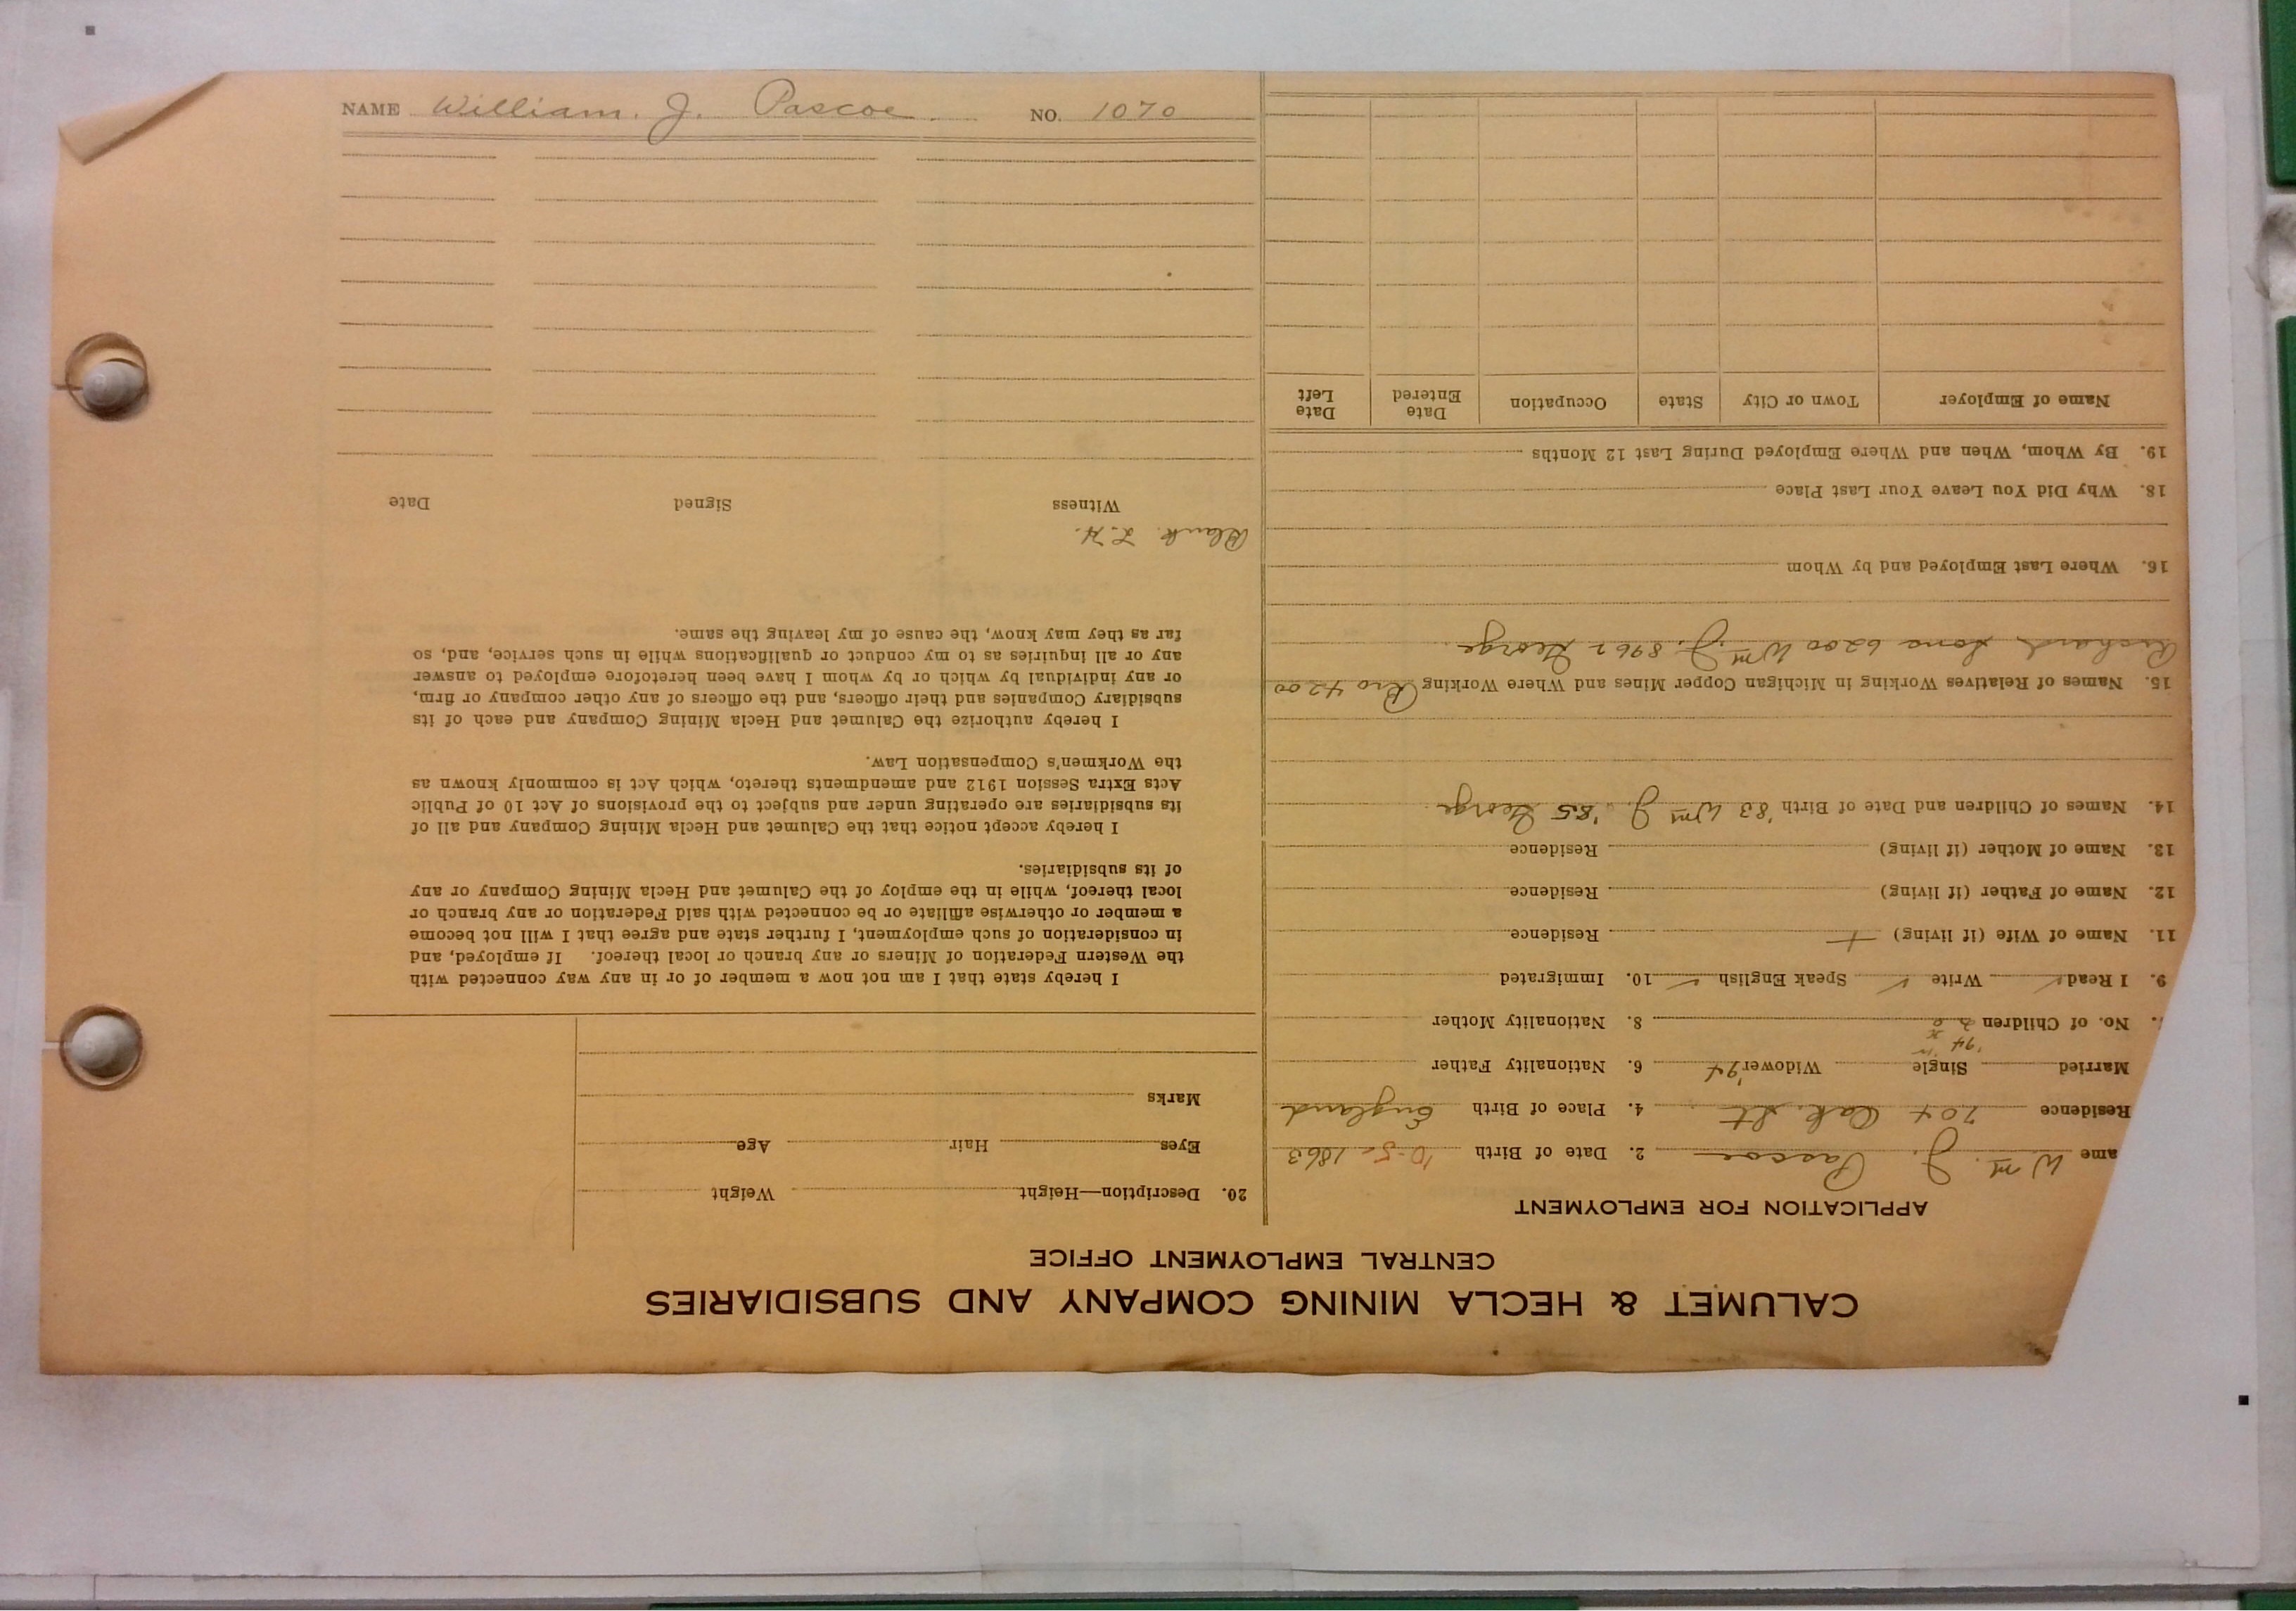 CALUMET & HECLA MINING COMPANY AND SUBSIDIARIES
CENTRAL EMPLOYMENT OFFICE
APPLICATION FOR EMPLOYMENT
ame Wm J. Pascoe 2. Date of Birth 10-5- 1863
Residence 704 Oak. St 4. Place of Birth England
Married Single Widower '94 6. Nationality Father
'94
No. of Children 2 8. Nationality Mother
9. I Read ✓ Write ✓ Speak English ✓ 10. Immigrated
11. Name of Wife (if living) Residence
12. Name of Father (if living) Residence
13. Name of Mother (if living) Residence
14. Names of Children and Date of Birth '83 Wm J. '85 George
15. Names of Relatives Working in Michigan Copper Mines and Where Working Bro 4200
Richard, Sons 6200 Wm J. 8962 George
16. Where Last Employed and by Whom
18. Why Did You Leave Your Last Place
19. By Whom, When and Where Employed During Last 12 Months
Name of Employer Town or City State Occupation Date Entered Date Left
20. Description—Height Weight
Eyes Hair Age
Marks
I hereby state that I am not now a member of or in any way connected with
the Western Federation of Miners or any branch or local thereof. If employed, and
in consideration of such employment, I further state and agree that I will not become
a member or otherwise affiliate or be connected with said Federation or any branch or
local thereof, while in the employ of the Calumet and Hecla Mining Company or any
of its subsidiaries.
I hereby accept notice that the Calumet and Hecla Mining Company and all of
its subsidiaries are operating under and subject to the provisions of Act 10 of Public
Acts Extra Session 1912 and amendments thereto, which Act is commonly known as
the Workmen's Compensation Law.
I hereby authorize the Calumet and Hecla Mining Company and each of its
subsidiary Companies and their officers, and the officers of any other company or firm,
or any individual by which or by whom I have been heretofore employed to answer
any or all inquiries as to my conduct or qualifications while in such service, and, so
far as they may know, the cause of my leaving the same.
Blank. L.H.
Witness Signed Date
NAME William. J. Pascoe NO. 1070